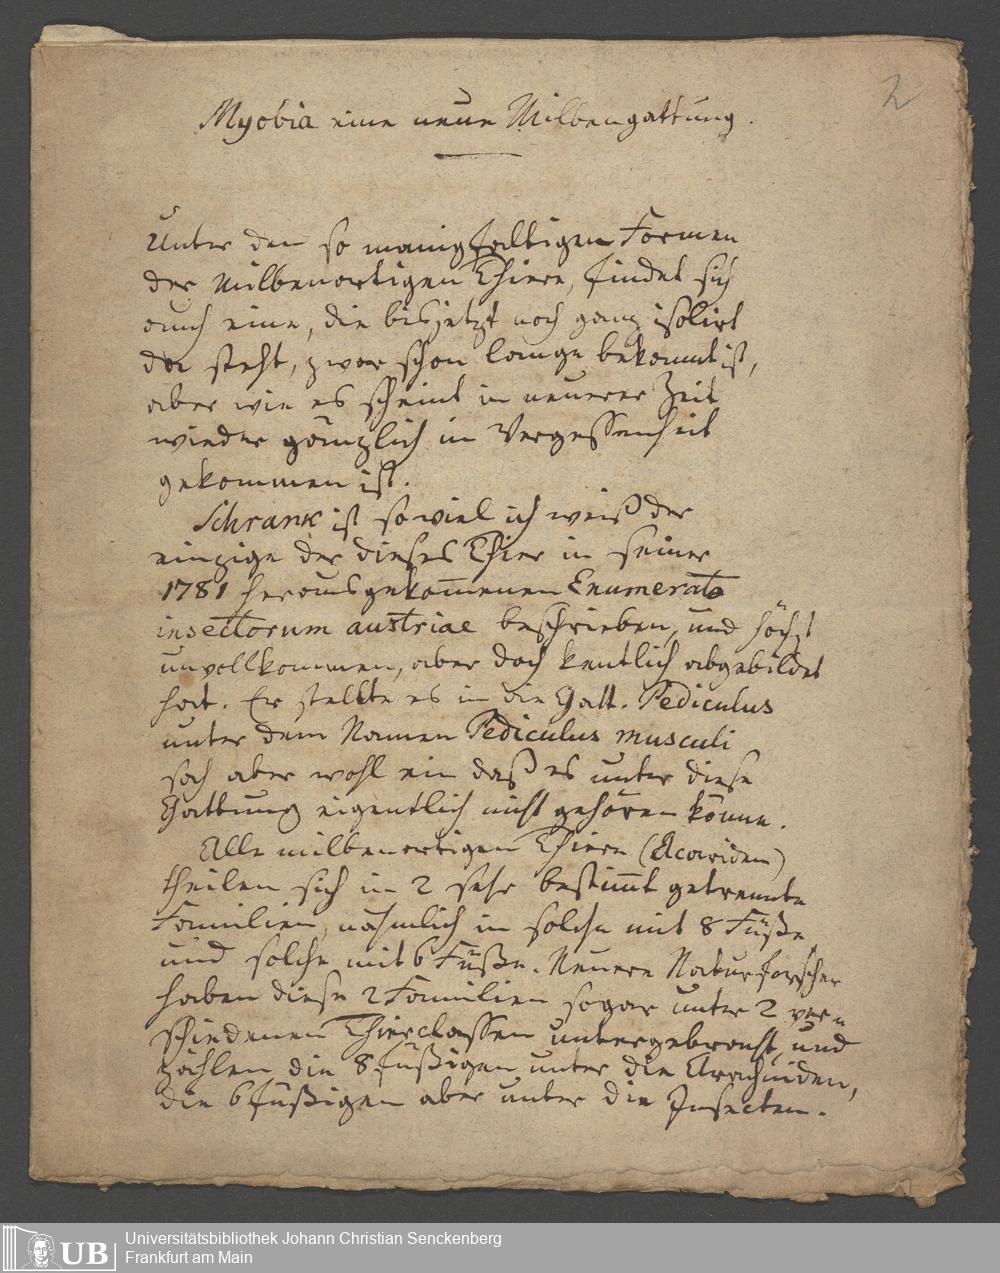 2
Myobia eine neue Milbengattung.
Unter den so manigfaltigen Formen
der milbenartigen Thiere, findet sich
auch eine, die bis jetzt noch ganz isolirt
da steht, zwar schon lange bekannt ist,
aber wie es scheint in neuerer Zeit
wieder gänzlich in Vergessenheit
gekommen ist.
Schrank ist so viel ich weiß der
einzige der dieses Thier in seiner
1781 herausgekom̄enen Enumeratio
insectorum austriae beschrieben, und höchst
unvollkommen, aber doch kentlich abgebildet
hat. Er stellte es in die Gatt. Pediculus
unter dem Namen Pediculus musculi
sah aber wohl ein daß es unter diese
Gattung eigentlich nicht gehören könne.
Alle milbenartigen Thiere (Acariden)
theilen sich in 2 sehr bestim̄t getrennte
Familien, nähmlich in solche mit 8 Füße
und solche mit 6 Füße. Neuere Naturforscher
haben diese 2 Familien sogar unter 2 ver=
schiedenen Thierclassen untergebracht, und
zählen die 8füßigen unter die Arachniden,
die 6füßigen aber unter die Insecten.
UB
Universitätsbibliothek Johann Christian Senckenberg
Frankfurt am Main